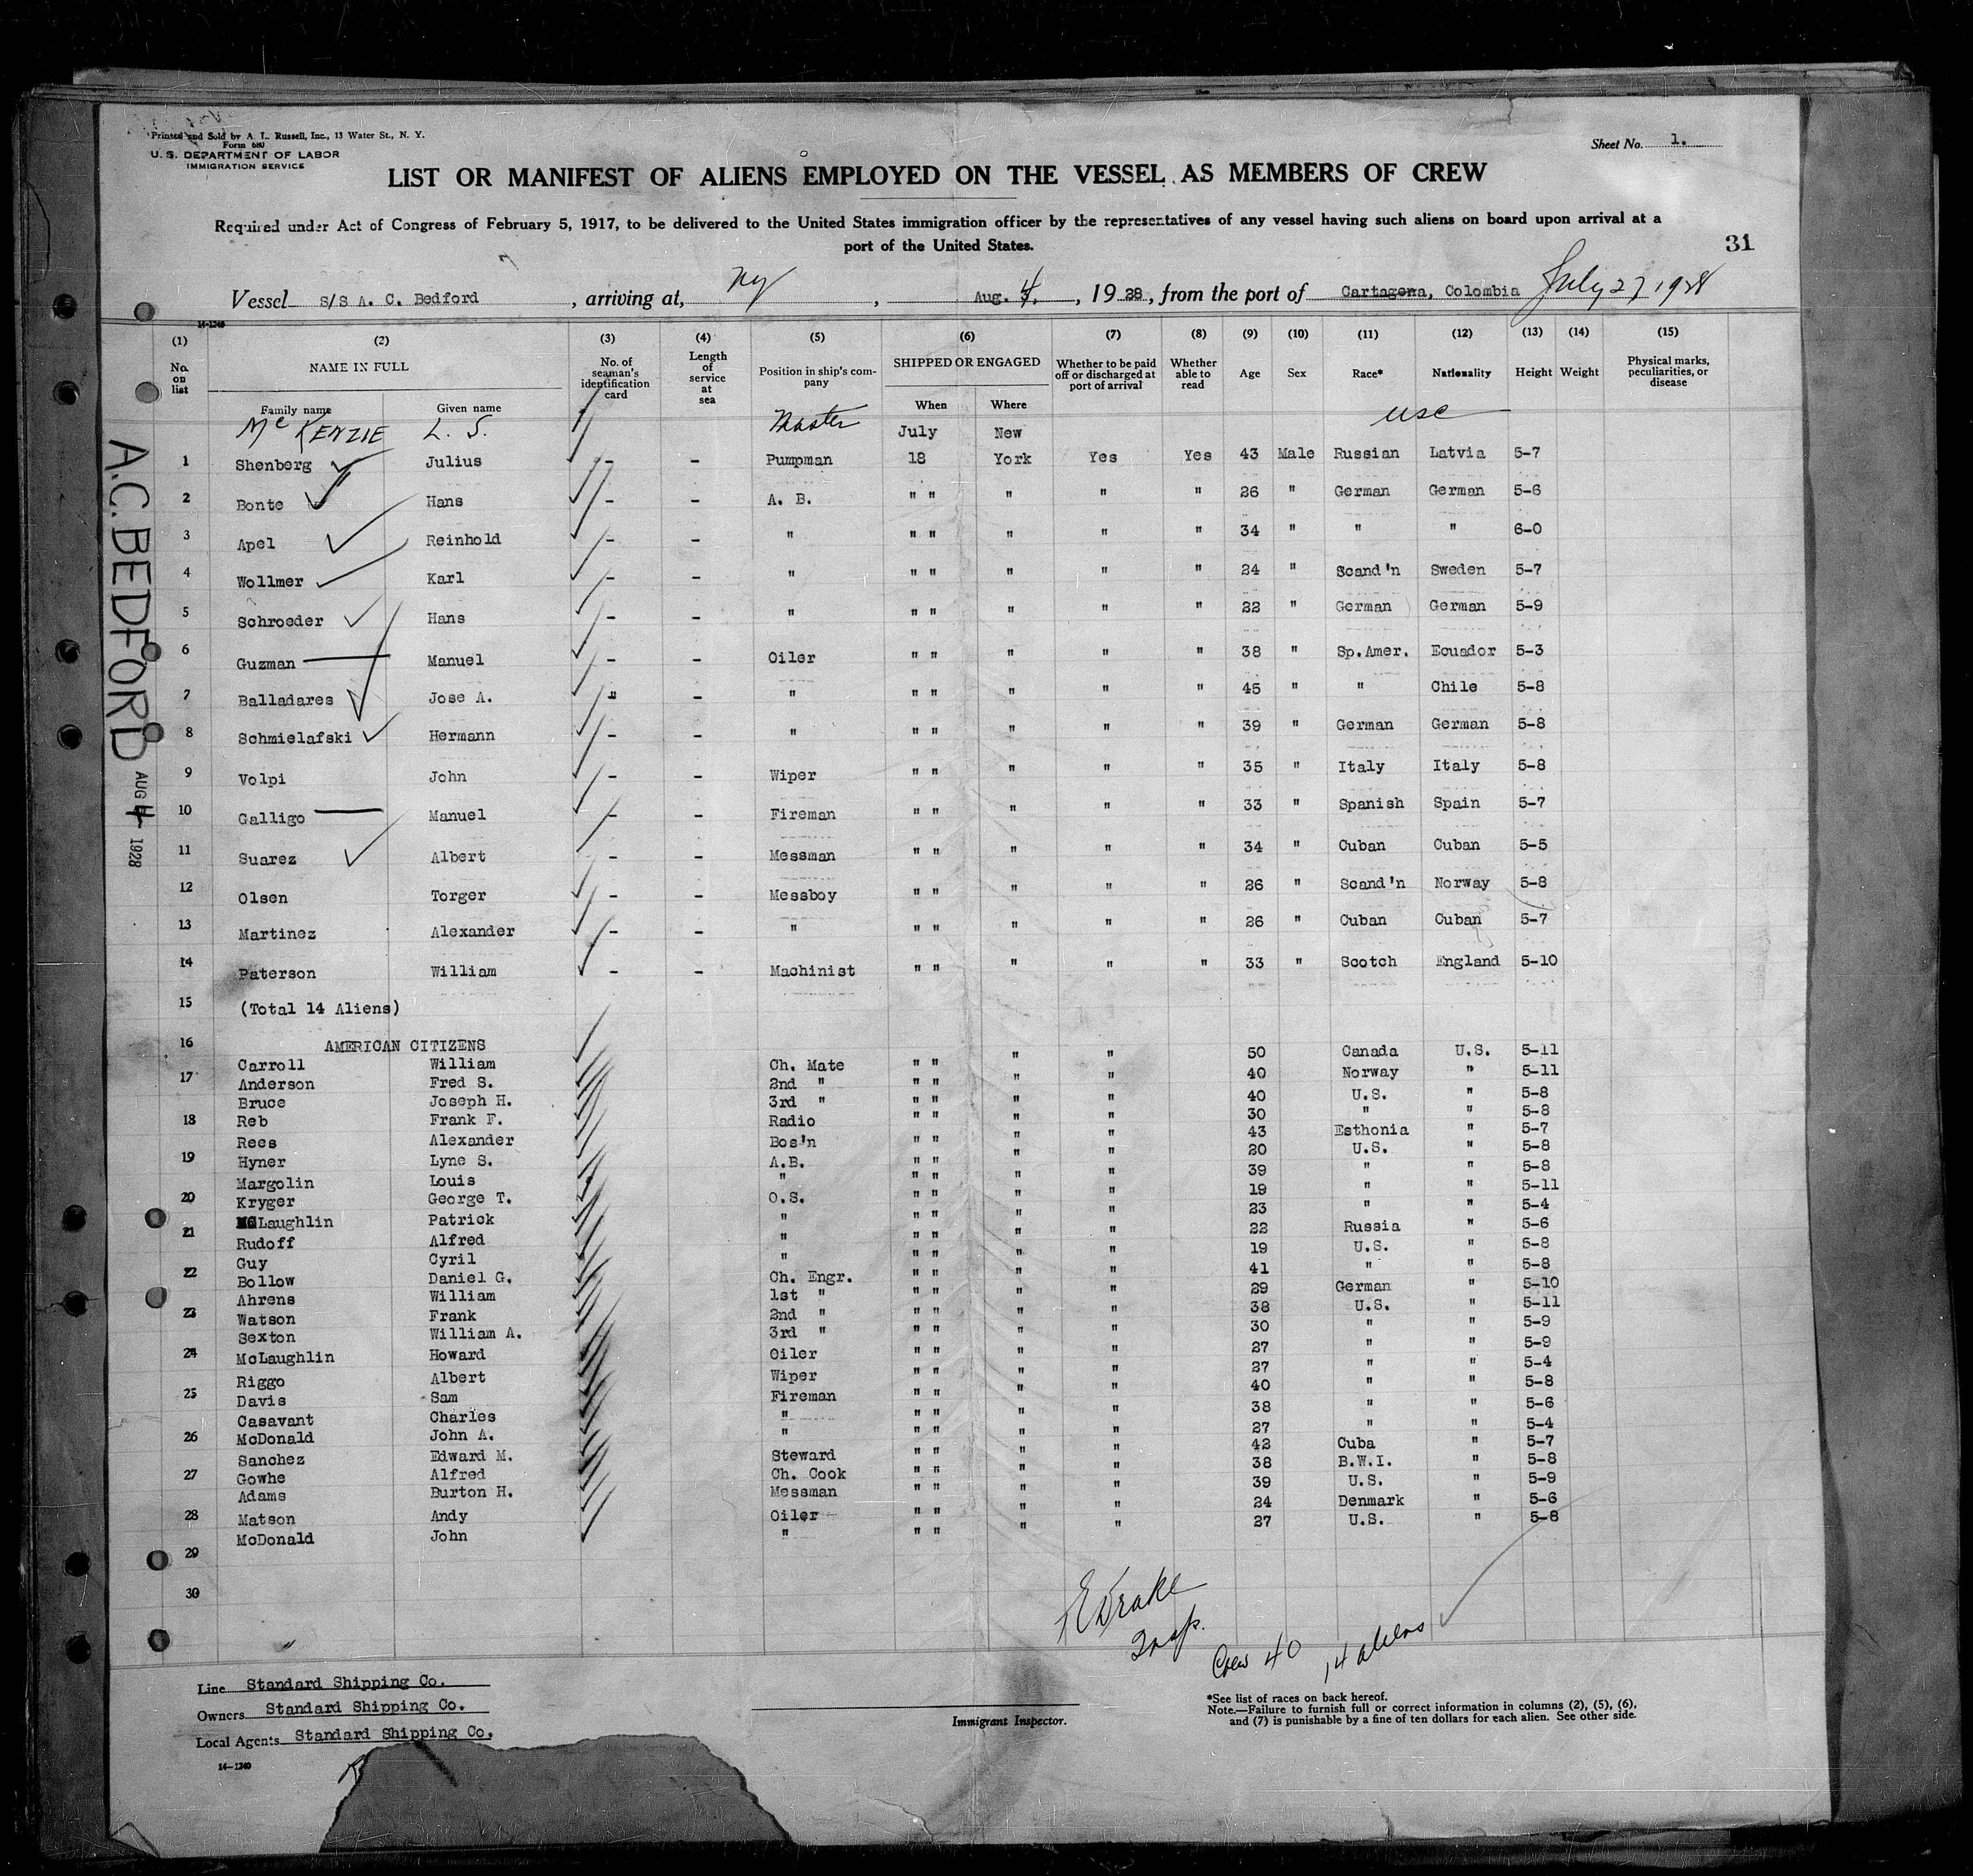 Printed and Sold by A. L. Russell, Inc., 13 Water St., N. Y.
Form 680
U. S. DEPARTMENT OF LABOR
IMMIGRATION SERVICE
Sheet No. 1.
LIST OR MANIFEST OF ALIENS EMPLOYED ON THE VESSEL AS MEMBERS OF CREW
Required under Act of Congress of February 5, 1917, to be delivered to the United States immigration officer by the representatives of any vessel having such aliens on board upon arrival at a
port of the United States.
31
Vessel S/S A. C. Bedford, arriving at, NY, Aug. 4, 1928, from the port of Cartagena, Colombia July 27, 1928
14-1240
(1) (2) (3) (4) (5) (6) (7) (8) (9) (10) (11) (12) (13) (14) (15)
No. on list NAME IN FULL Family name Given name No. of seaman's identification card Length of service at sea Position in ship's company SHIPPED OR ENGAGED When Where Whether to be paid off or discharged at port of arrival Whether able to read Age Sex Race* Nationality Height Weight Physical marks, peculiarities, or disease
McKENZIE L. S. Master USC
July New
1 Shenberg Julius - - Pumpman 18 York Yes Yes 43 Male Russian Latvia 5-7
2 Bonte Hans - - A. B. " " " " " 26 " German German 5-6
3 Apel Reinhold - - " " " " " " 34 " " " 6-0
4 Wollmer Karl - - " " " " " " 24 " Scand'n Sweden 5-7
5 Schroeder Hans - - " " " " " " 22 " German German 5-9
6 Guzman Manuel - - Oiler " " " " " 38 " Sp.Amer. Ecuador 5-3
7 Balladares Jose A. " - " " " " " " 45 " " Chile 5-8
8 Schmielafski Hermann - - " " " " " " 39 " German German 5-8
9 Volpi John - - Wiper " " " " " 35 " Italy Italy 5-8
10 Galligo Manuel - - Fireman " " " " " 33 " Spanish Spain 5-7
11 Suarez Albert - - Messman " " " " " 34 " Cuban Cuban 5-5
12 Olsen Torger - - Messboy " " " " " 26 " Scand'n Norway 5-8
13 Martinez Alexander - - " " " " " " 26 " Cuban Cuban 5-7
14 Paterson William - - Machinist " " " " " 33 " Scotch England 5-10
15 (Total 14 Aliens)
16 AMERICAN CITIZENS
Carroll William Ch. Mate " " " " 50 Canada U.S. 5-11
17 Anderson Fred S. 2nd " " " " " 40 Norway " 5-11
Bruce Joseph H. 3rd " " " " " 40 U.S. " 5-8
18 Reb Frank F. Radio " " " " 30 " " 5-8
Rees Alexander Bos'n " " " " 43 Esthonia " 5-7
19 Hyner Lyne S. A.B. " " " " 20 U.S. " 5-8
Margolin Louis " " " " " 39 " " 5-8
20 Kryger George T. O.S. " " " " 19 " " 5-11
McLaughlin Patrick " " " " " 23 " " 5-4
21 Rudoff Alfred " " " " " 22 Russia " 5-6
Guy Cyril " " " " " 19 U.S. " 5-8
22 Bollow Daniel G. Ch. Engr. " " " " 41 " " 5-8
Ahrens William 1st " " " " " 29 German " 5-10
23 Watson Frank 2nd " " " " " 38 U.S. " 5-11
Sexton William A. 3rd " " " " " 30 " " 5-9
24 McLaughlin Howard Oiler " " " " 27 " " 5-9
Riggo Albert Wiper " " " " 27 " " 5-4
25 Davis Sam Fireman " " " " 40 " " 5-8
Casavant Charles " " " " " 38 " " 5-6
26 McDonald John A. " " " " " 27 " " 5-4
Sanchez Edward M. Steward " " " " 42 Cuba " 5-7
27 Gowhe Alfred Ch. Cook " " " " 38 B.W.I. " 5-8
Adams Burton H. Messman " " " " 39 U.S. " 5-9
28 Matson Andy Oiler " " " " 24 Denmark " 5-6
McDonald John " " " " " 27 U.S. " 5-8
29
30
A.C. BEDFORD AUG 4 1928
Drake
Insp.
Crew 40 14 aliens
Line Standard Shipping Co.
Owners Standard Shipping Co.
Local Agents Standard Shipping Co.
14-1240
Immigrant Inspector.
*See list of races on back hereof.
Note.—Failure to furnish full or correct information in columns (2), (5), (6),
and (7) is punishable by a fine of ten dollars for each alien. See other side.